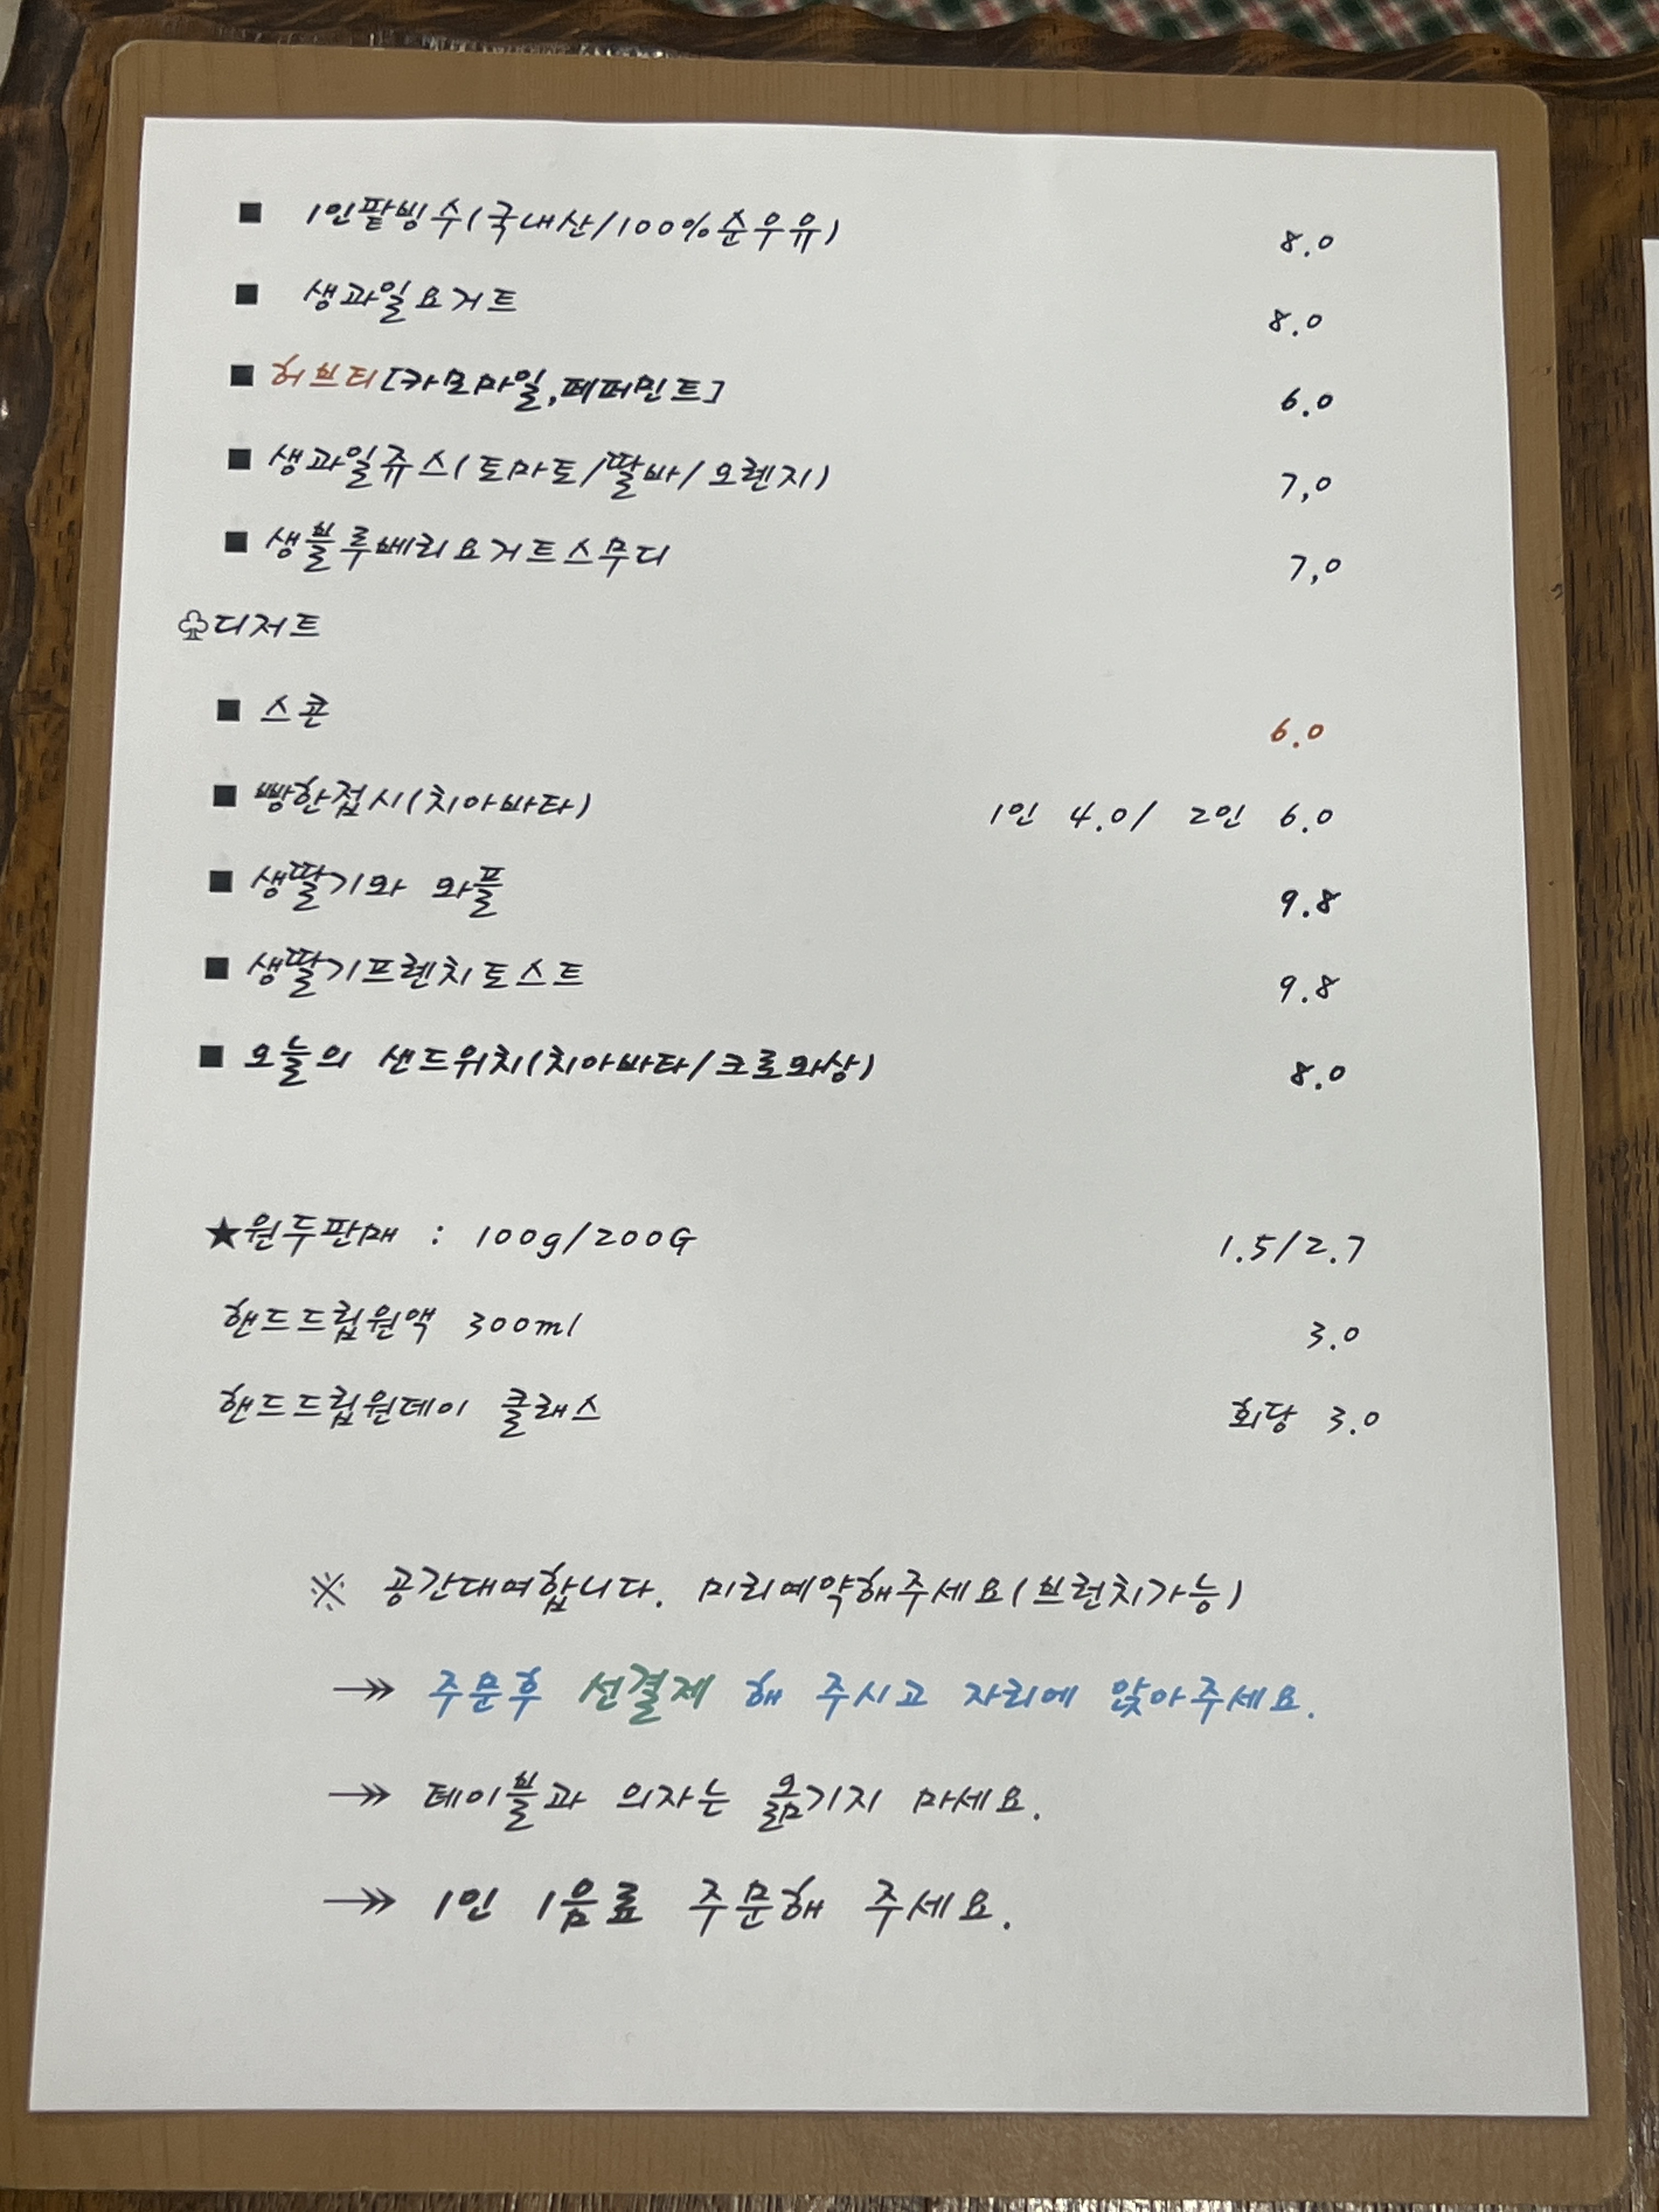 ■ 1인팥빙수(국내산/100%순우유) 8.0
■ 생과일요거트 8.0
■ 허브티[카모마일,페퍼민트] 6.0
■ 생과일쥬스(토마토/딸바/오렌지) 7,0
■ 생블루베리요거트스무디 7,0
♧디저트
■ 스콘 6.0
■ 빵한접시(치아바타) 1인 4.0/ 2인 6.0
■ 생딸기와 와플 9.8
■ 생딸기프렌치토스트 9.8
■ 오늘의 샌드위치(치아바타/크로와상) 8.0
★원두판매 : 100g/200G 1.5/2.7
핸드드립원액 300ml 3.0
핸드드립원데이 클래스 회당 3.0
※ 공간대여합니다. 미리예약해주세요(브런치가능)
→» 주문후 선결제 해 주시고 자리에 앉아주세요.
→» 테이블과 의자는 옮기지 마세요.
→» 1인 1음료 주문해 주세요.